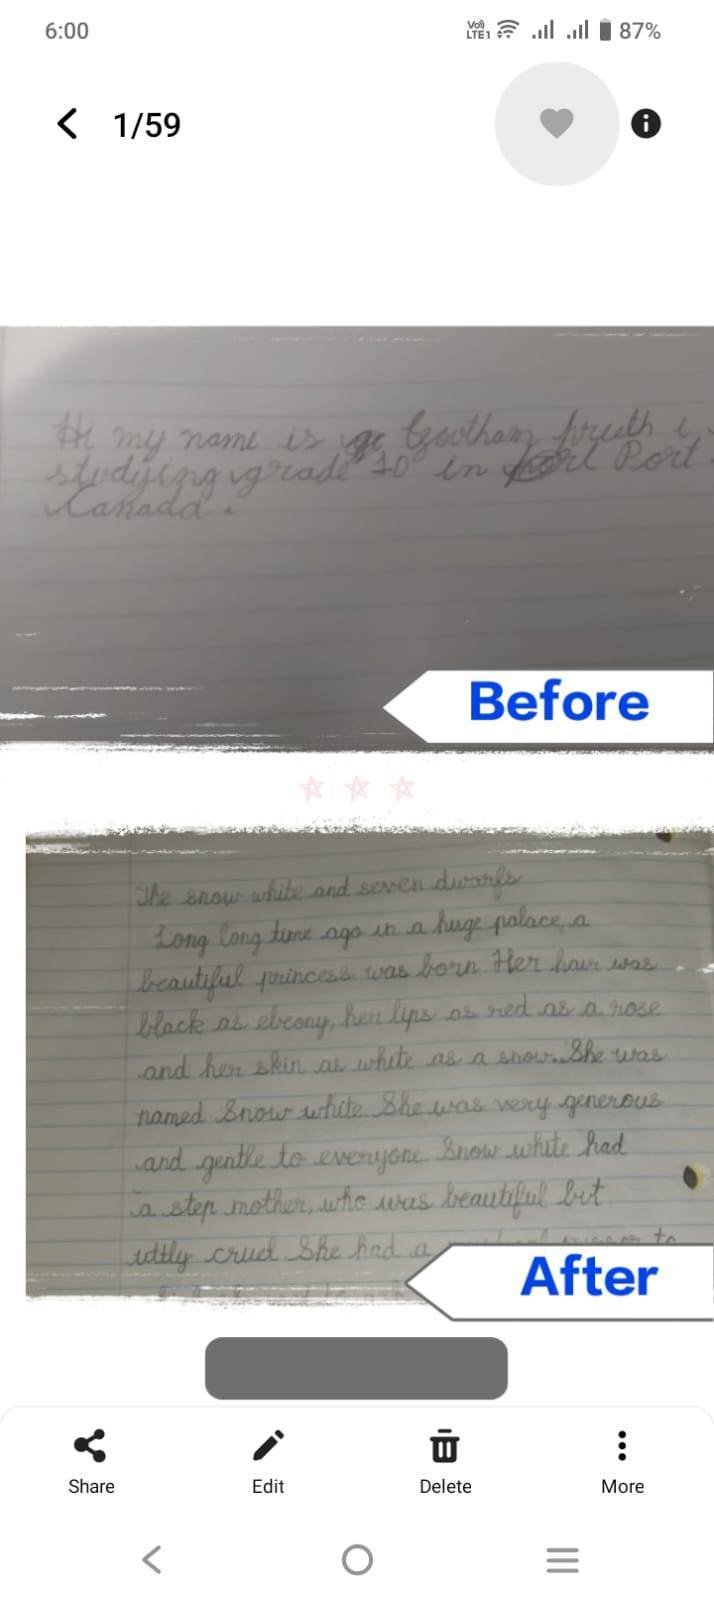 6:00
Vo) LTE1 87%
1/59
Hi my name is Goutham
studying grade 10 in Port
Canada.
Before
The snow white and seven dwarfs
Long long time ago in a huge palace, a
beautiful princess was born. Her hair was
black as ebeony, her lips as red as a rose
and her skin as white as a snow. She was
named Snow white. She was very generous
and gentle to everyone. Snow white had
a step mother, who was beautiful but
cruel She had a
to
After
Share
Edit
Delete
More